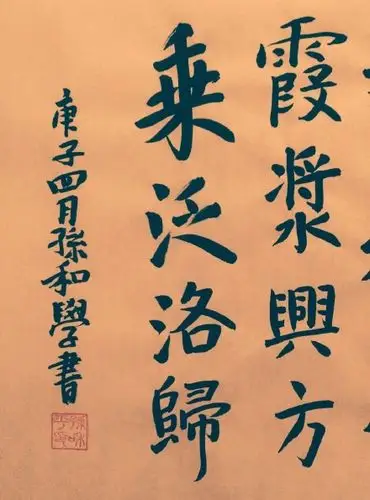 霞漿興方
乘泛洛歸
庚子四月孫和學書